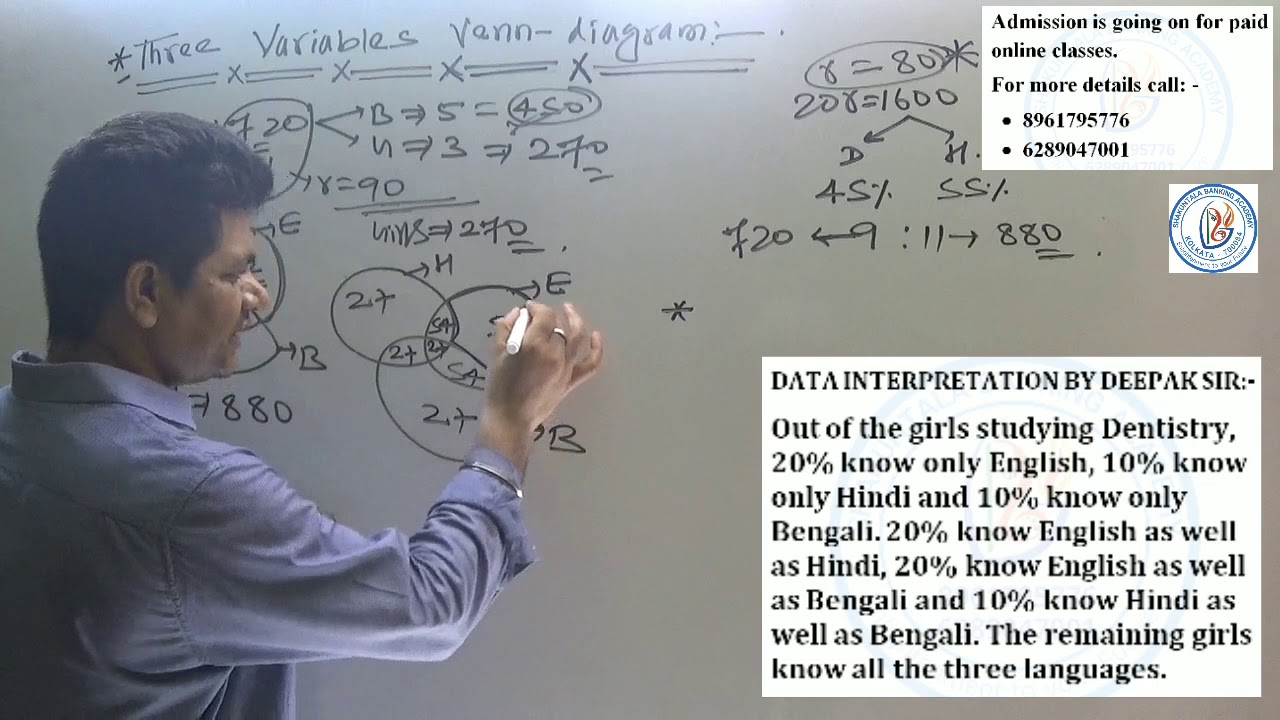 * Three Variables Venn-diagram:-
720 → B ⇒ 5 = 450
→ 3 ⇒ 270
r = 90
⇒ 270
r = 80 *
20r = 1600
D H
45% 55%
720 ← 9 : 11 → 880
E
B
⇒ 880
H
E
B
2+
5+
2+
2+
5+
2+
*
Admission is going on for paid
online classes.
For more details call: -
• 8961795776
• 6289047001
SHAKUNTALA BANKING ACADEMY
KOLKATA - 700084
DATA INTERPRETATION BY DEEPAK SIR:-
Out of the girls studying Dentistry,
20% know only English, 10% know
only Hindi and 10% know only
Bengali. 20% know English as well
as Hindi, 20% know English as well
as Bengali and 10% know Hindi as
well as Bengali. The remaining girls
know all the three languages.